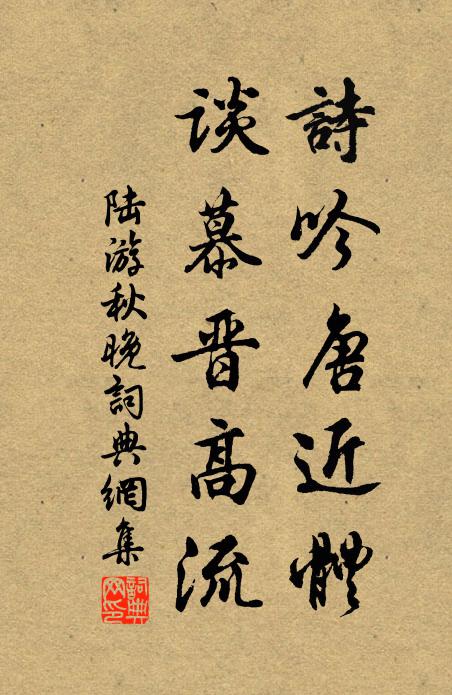 詩吟唐近體
谈慕晋高流
陆游秋晚詞典網集
詞典网印